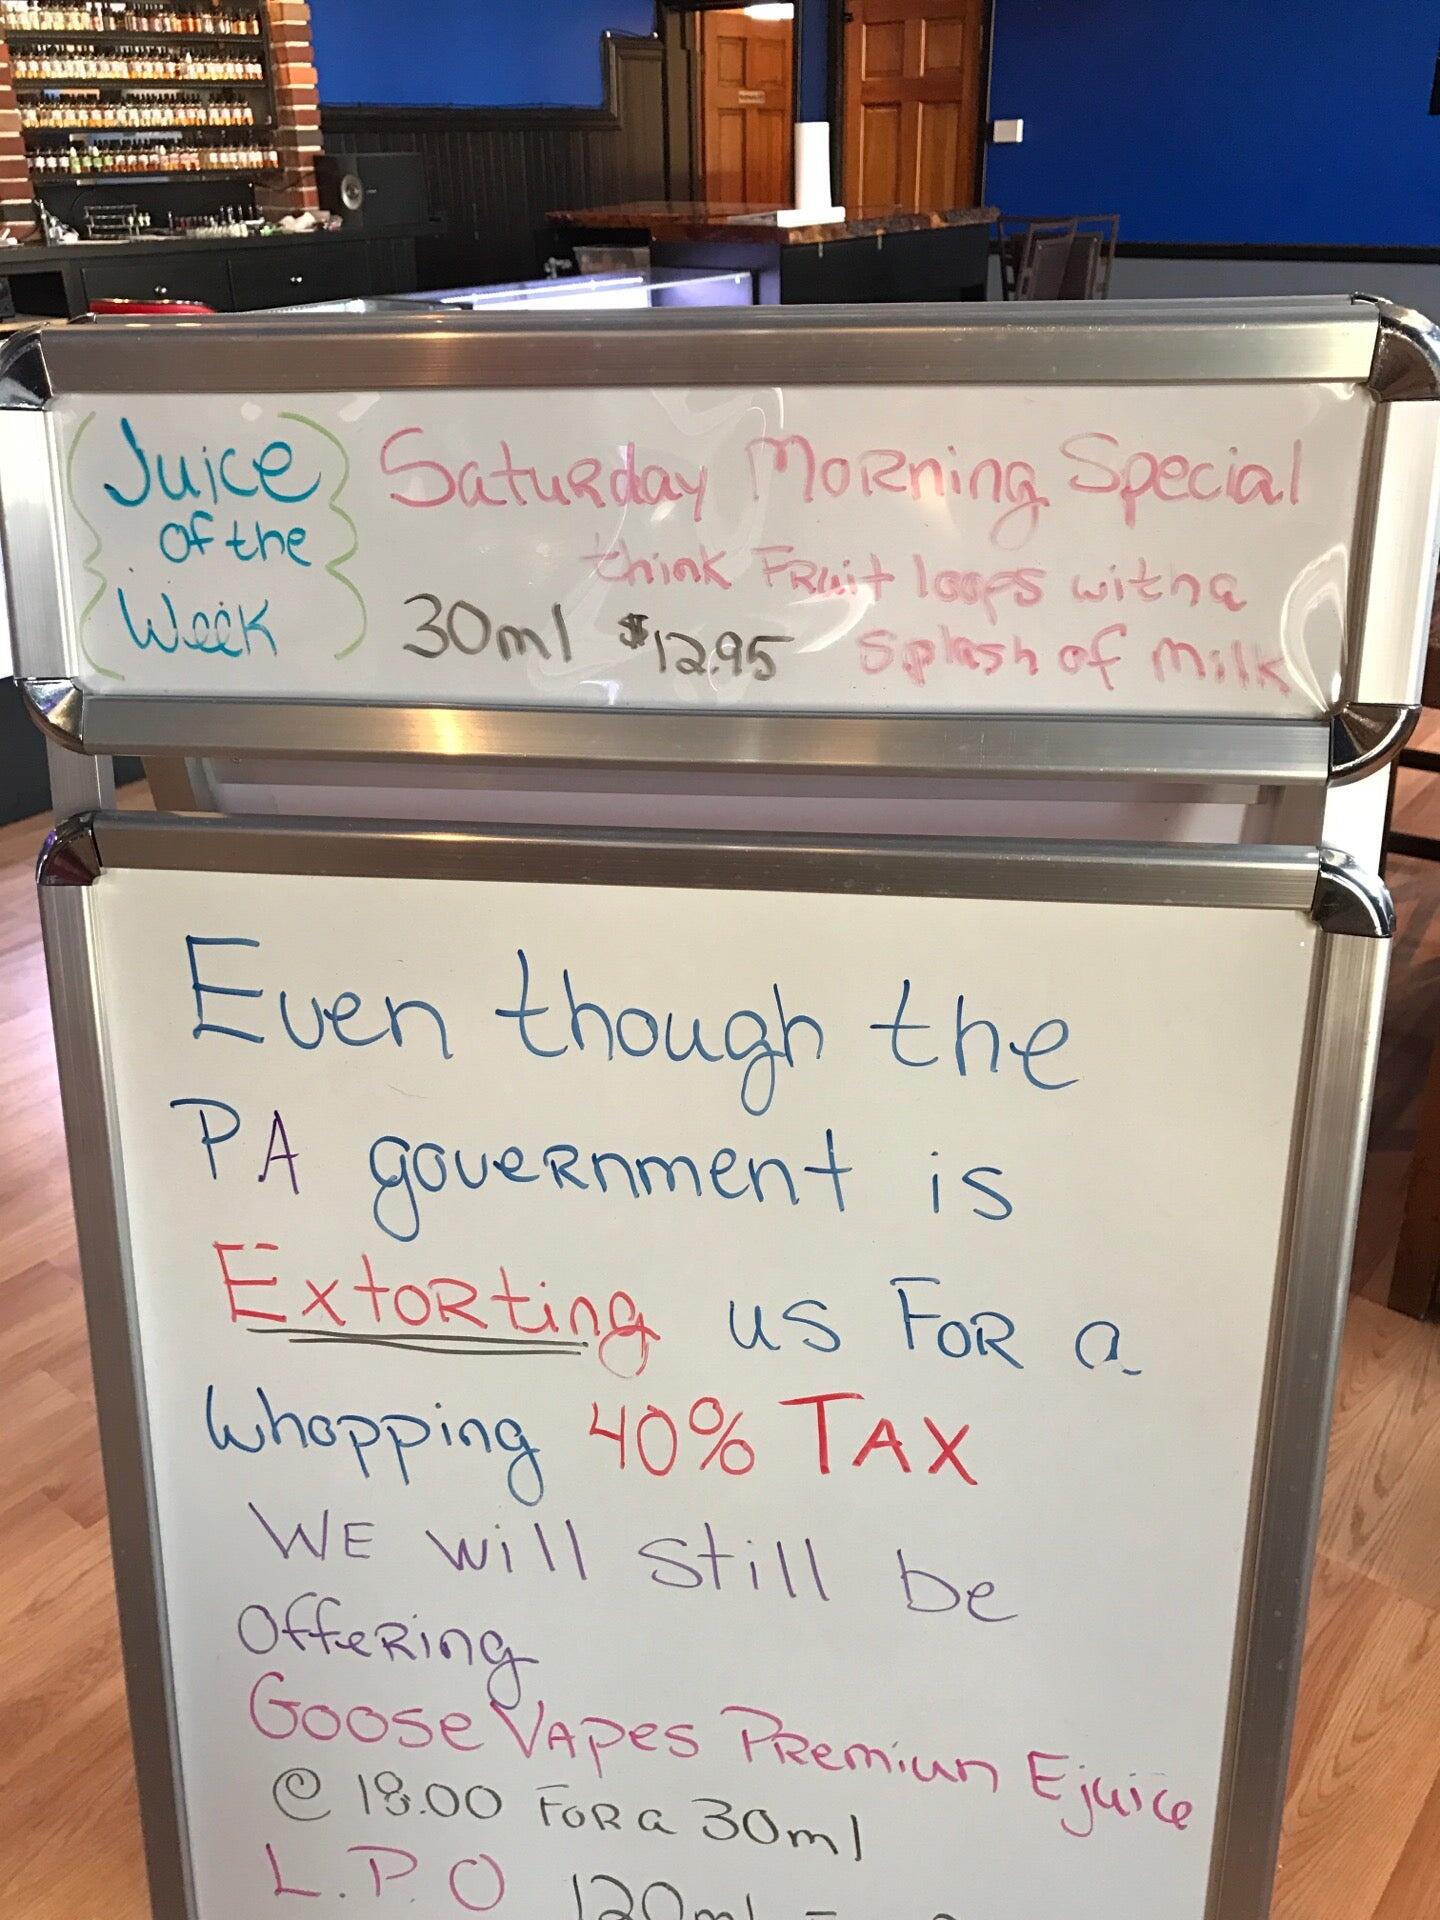 Juice
of the
Week
Saturday Morning Special
think Fruit loops with a
30ml $12.95 Splash of Milk
Even though the
PA government is
Extorting us For a
Whopping 40% TAX
WE will still be
Offering
Goose Vapes Premium Ejuice
@ 18.00 For a 30ml
L.P.O 120ml